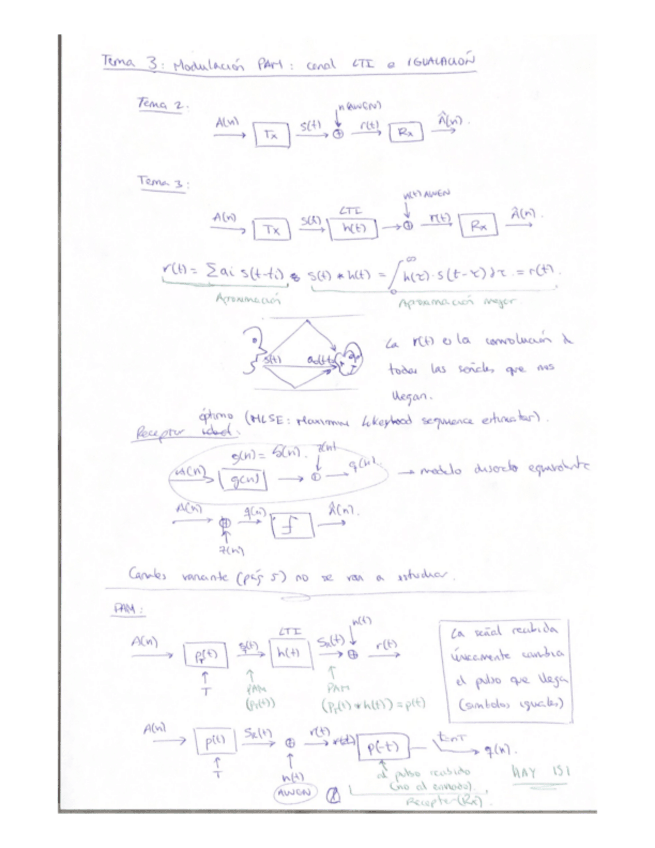 Tema 3: Modulación PAM: canal LTI e IGUALACIÓN
Tema 2:
A(n) Tx s(t) n(AWGN) r(t) Rx Â(n).
Tema 3:
A(n) Tx s(t) LTI h(t) n(t) AWGN r(t) Rx Â(n).
r(t) = ∑ai s(t-ti) s(t) * h(t) = ∫₀^∞ h(τ)·s(t-τ)dτ = r(t).
Aproximación Aproximación mejor
s(t)
La r(t) es la convolución de
todas las señales que nos
llegan.
óptimo (MLSE: Maximum likelyhood sequence estimator).
Receptor ideal:
g(n) = δ(n). z(n)
A(n) g(n) q(n) → modelo discreto equivalente
A(n) q(n) Â(n).
z(n)
Canales variante (pág 5) no se van a estudiar.
PAM:
A(n) pT(t) s(t) LTI h(t) SR(t) n(t) r(t)
T PAM PAM
(PT(t)) (PT(t) * h(t)) = p(t)
La señal recibida
únicamente cambia
el pulso que llega
(símbolos iguales)
A(n) p(t) SR(t) r(t) r(t) p(-t) t=nT q(n).
T n(t) el pulso recibido
AWGN (no al enviado). HAY ISI
Receptor (Rx).